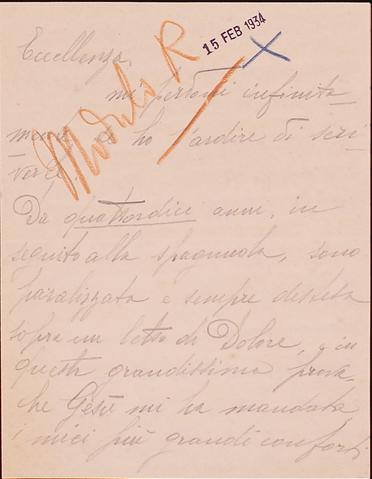 15 FEB 1934
Modulo R
Eccellenza,
mi perdoni infinita
mente se ho l'ardire di scri
verLe.
Da quattordici anni, in
seguito alla spagnuola, sono
paralizzata e sempre distesa
sopra un letto di Dolore, in
questa grandissima prova,
che Gesù mi ha mandata
i miei più grandi conforti